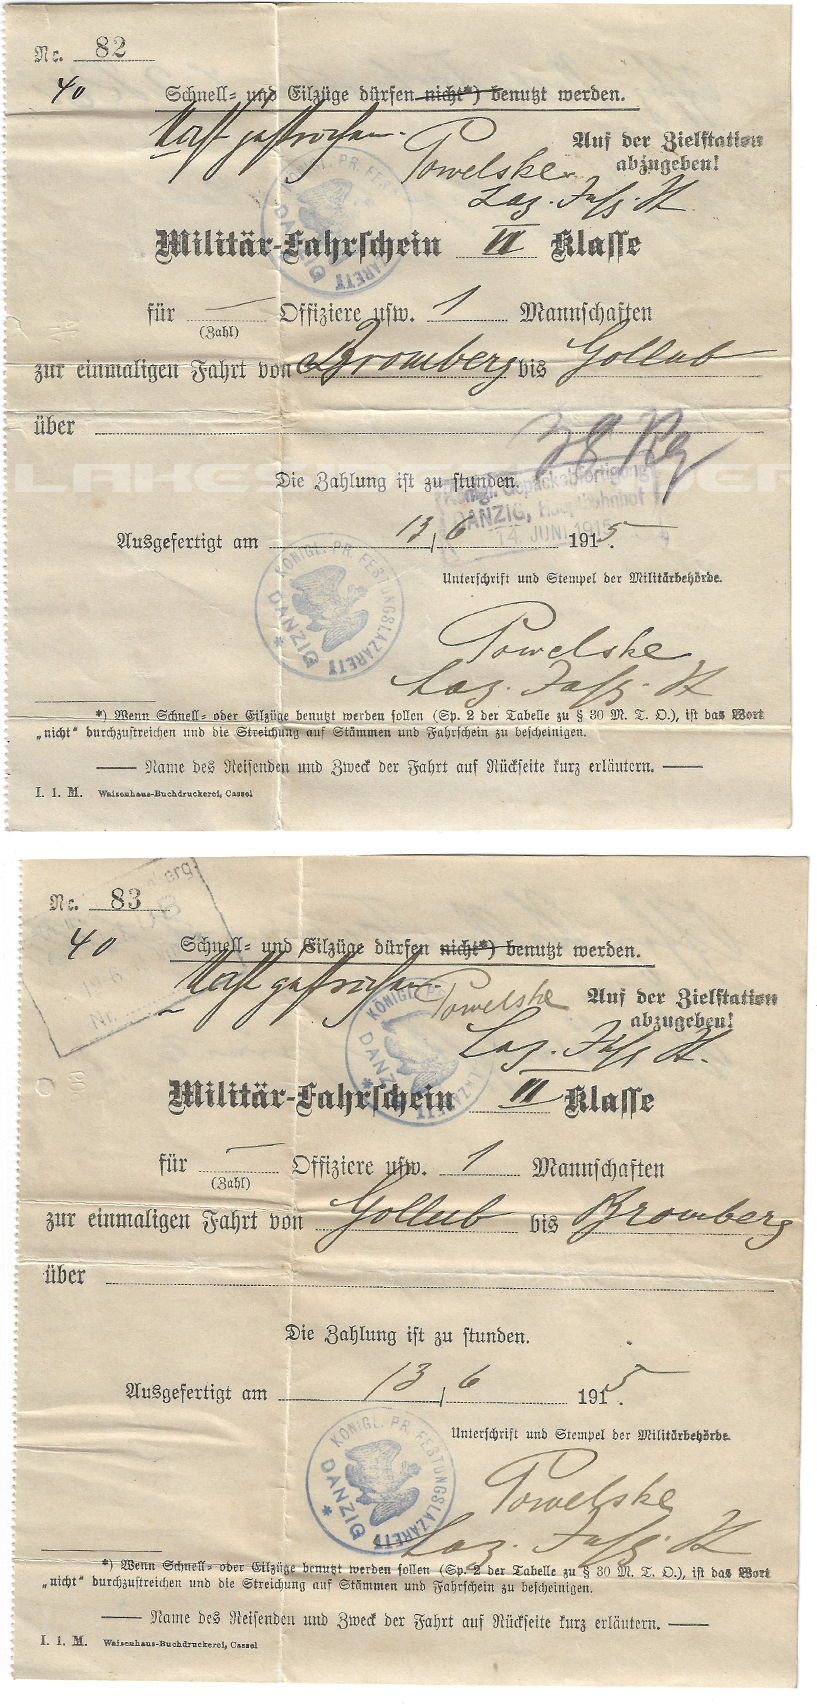 Nr. 82
40
Schnell= und Eilzüge dürfen nicht*) benutzt werden.
Powelske
Auf der Zielstation
abzugeben!
Laz. Insp. St
KÖNIGL. PR. FEST LAZARETT DANZIG
Militär-Fahrschein III Klasse
für — Offiziere usw. 1 Mannschaften
(Zahl)
zur einmaligen Fahrt von Bromberg bis Gollub
über
38 Kg
Die Zahlung ist zu stunden.
Königl. Gepäckabfertigung
DANZIG, Hauptbahnhof
14. JUNI 1915
Ausgefertigt am 13/6 1915.
Unterschrift und Stempel der Militärbehörde.
KÖNIGL. PR. FESTUNGSLAZARETT * DANZIG
Powelske
Laz. Insp. St
*) Wenn Schnell= oder Eilzüge benutzt werden sollen (Sp. 2 der Tabelle zu § 30 M. T. O.), ist das Wort
„nicht" durchzustreichen und die Streichung auf Stämmen und Fahrschein zu bescheinigen.
—— Name des Reisenden und Zweck der Fahrt auf Rückseite kurz erläutern. ——
I. 1. M. Waisenhaus-Buchdruckerei, Cassel
Nr. 83
40
Schnell= und Eilzüge dürfen nicht*) benutzt werden.
Powelske
Auf der Zielstation
abzugeben!
Laz. Insp. St.
KÖNIGL. LAZARETT * DANZIG
Militär-Fahrschein III Klasse
für — Offiziere usw. 1 Mannschaften
(Zahl)
zur einmaligen Fahrt von Gollub bis Bromberg
über
Die Zahlung ist zu stunden.
Ausgefertigt am 13/6 1915.
Unterschrift und Stempel der Militärbehörde.
KÖNIGL. PR. FESTUNGSLAZARETT * DANZIG
Powelske
Laz. Insp. St
*) Wenn Schnell= oder Eilzüge benutzt werden sollen (Sp. 2 der Tabelle zu § 30 M. T. O.), ist das Wort
„nicht" durchzustreichen und die Streichung auf Stämmen und Fahrschein zu bescheinigen.
—— Name des Reisenden und Zweck der Fahrt auf Rückseite kurz erläutern. ——
I. 1. M. Waisenhaus-Buchdruckerei, Cassel